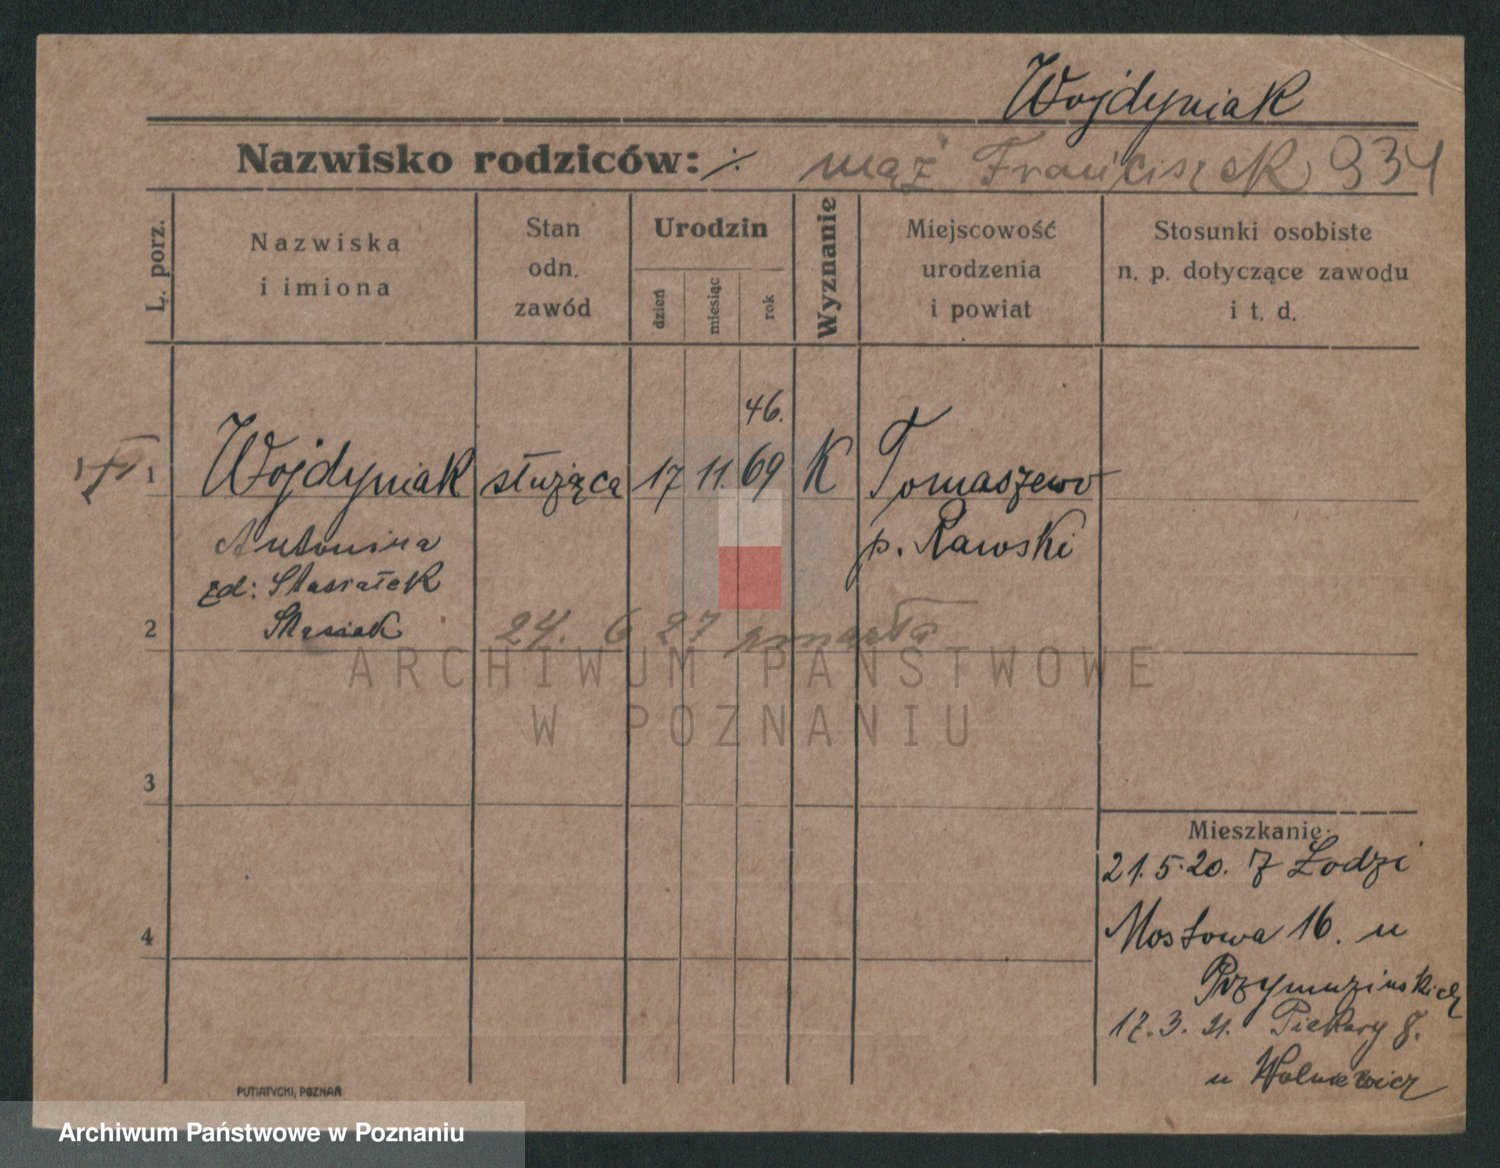 Wojdyniak
Nazwisko rodziców: ·/· mąż Franciszek 934
L. porz.
Nazwiska
i imiona
Stan
odn.
zawód
Urodzin
dzień
miesiąc
rok
Wyznanie
Miejscowość
urodzenia
i powiat
Stosunki osobiste
n. p. dotyczące zawodu
i t. d.
46.
1 Wojdyniak służąca 17 11. 69 K Tomaszewo
Antonina p. Rawski
zd: Stasiałek
2 Stasiak 24. 6 27 zmarła
ARCHIWUM PAŃSTWOWE
W POZNANIU
3
Mieszkanie:
21.5.20. z Łodzi
4 Mostowa 16. u
Przymuzińskich
17.3.21. Piekary 8.
u Wolniewicz
PUTIATYCKI, POZNAŃ
Archiwum Państwowe w Poznaniu